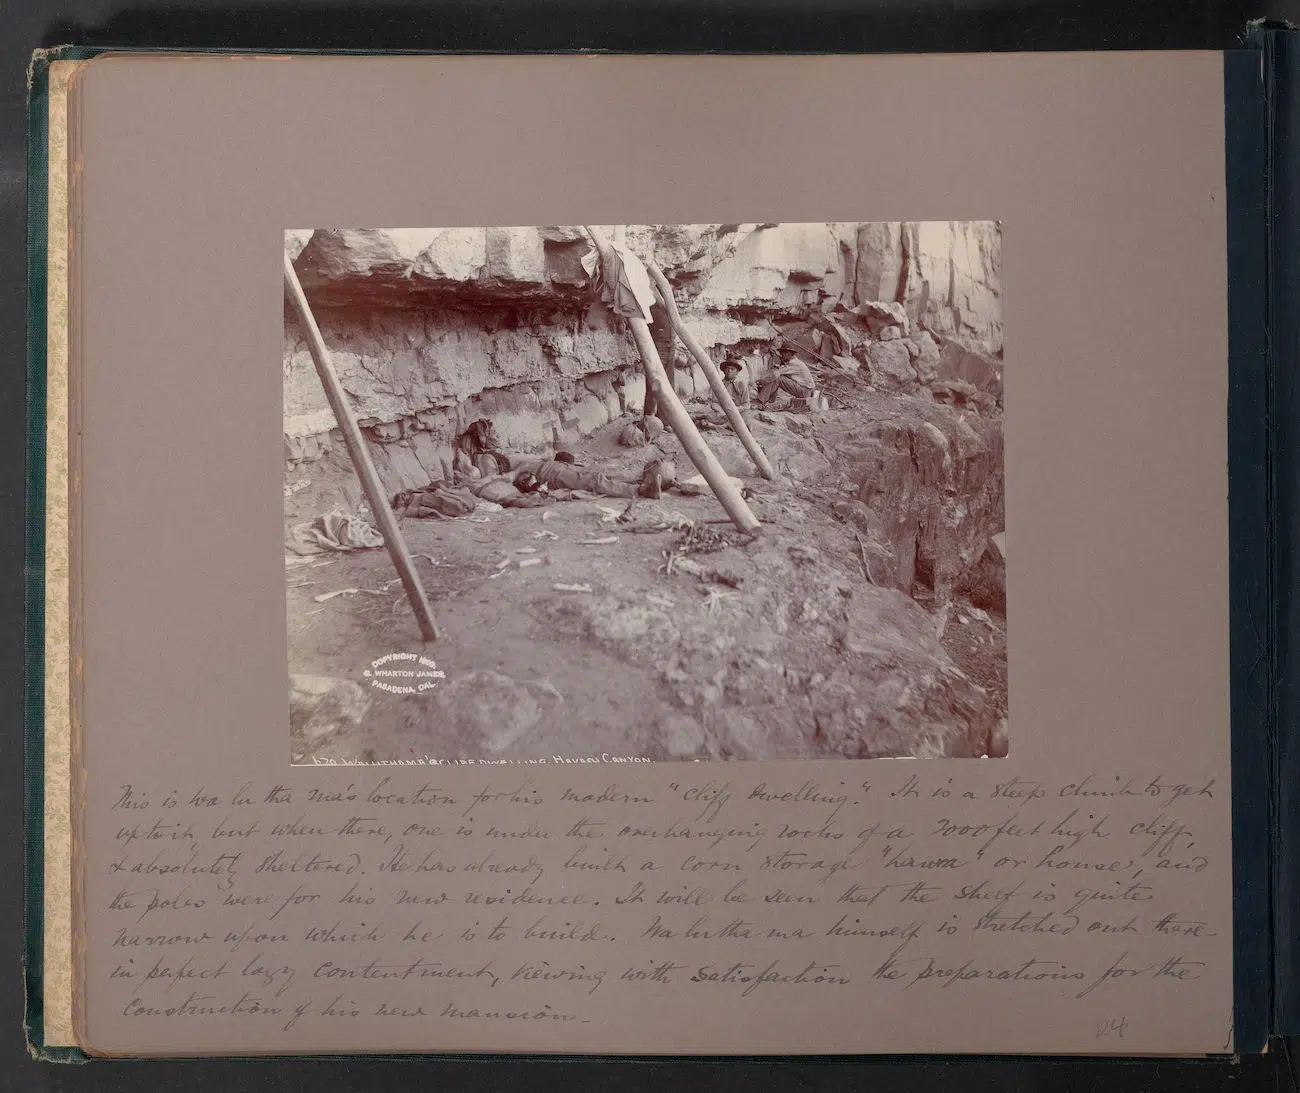 COPYRIGHT
G. WHARTON JAMES
PASADENA, CAL.
670 WALUTHAMA'S CLIFF DWELLING. HAVASU CANYON.
This is Wa lu tha ma's location for his modern "cliff dwelling." It is a steep climb to get
up to it, but when there, one is under the overhanging rocks of a feet high cliff,
& absolutely sheltered. He has already built a corn storage "hawa" or house, and
the poles were for his new residence. It will be seen that the shelf is quite
narrow upon which he is to build. Wa lu tha ma himself is stretched out there
in perfect lazy contentment, viewing with satisfaction the preparations for the
construction of his new mansion.
24